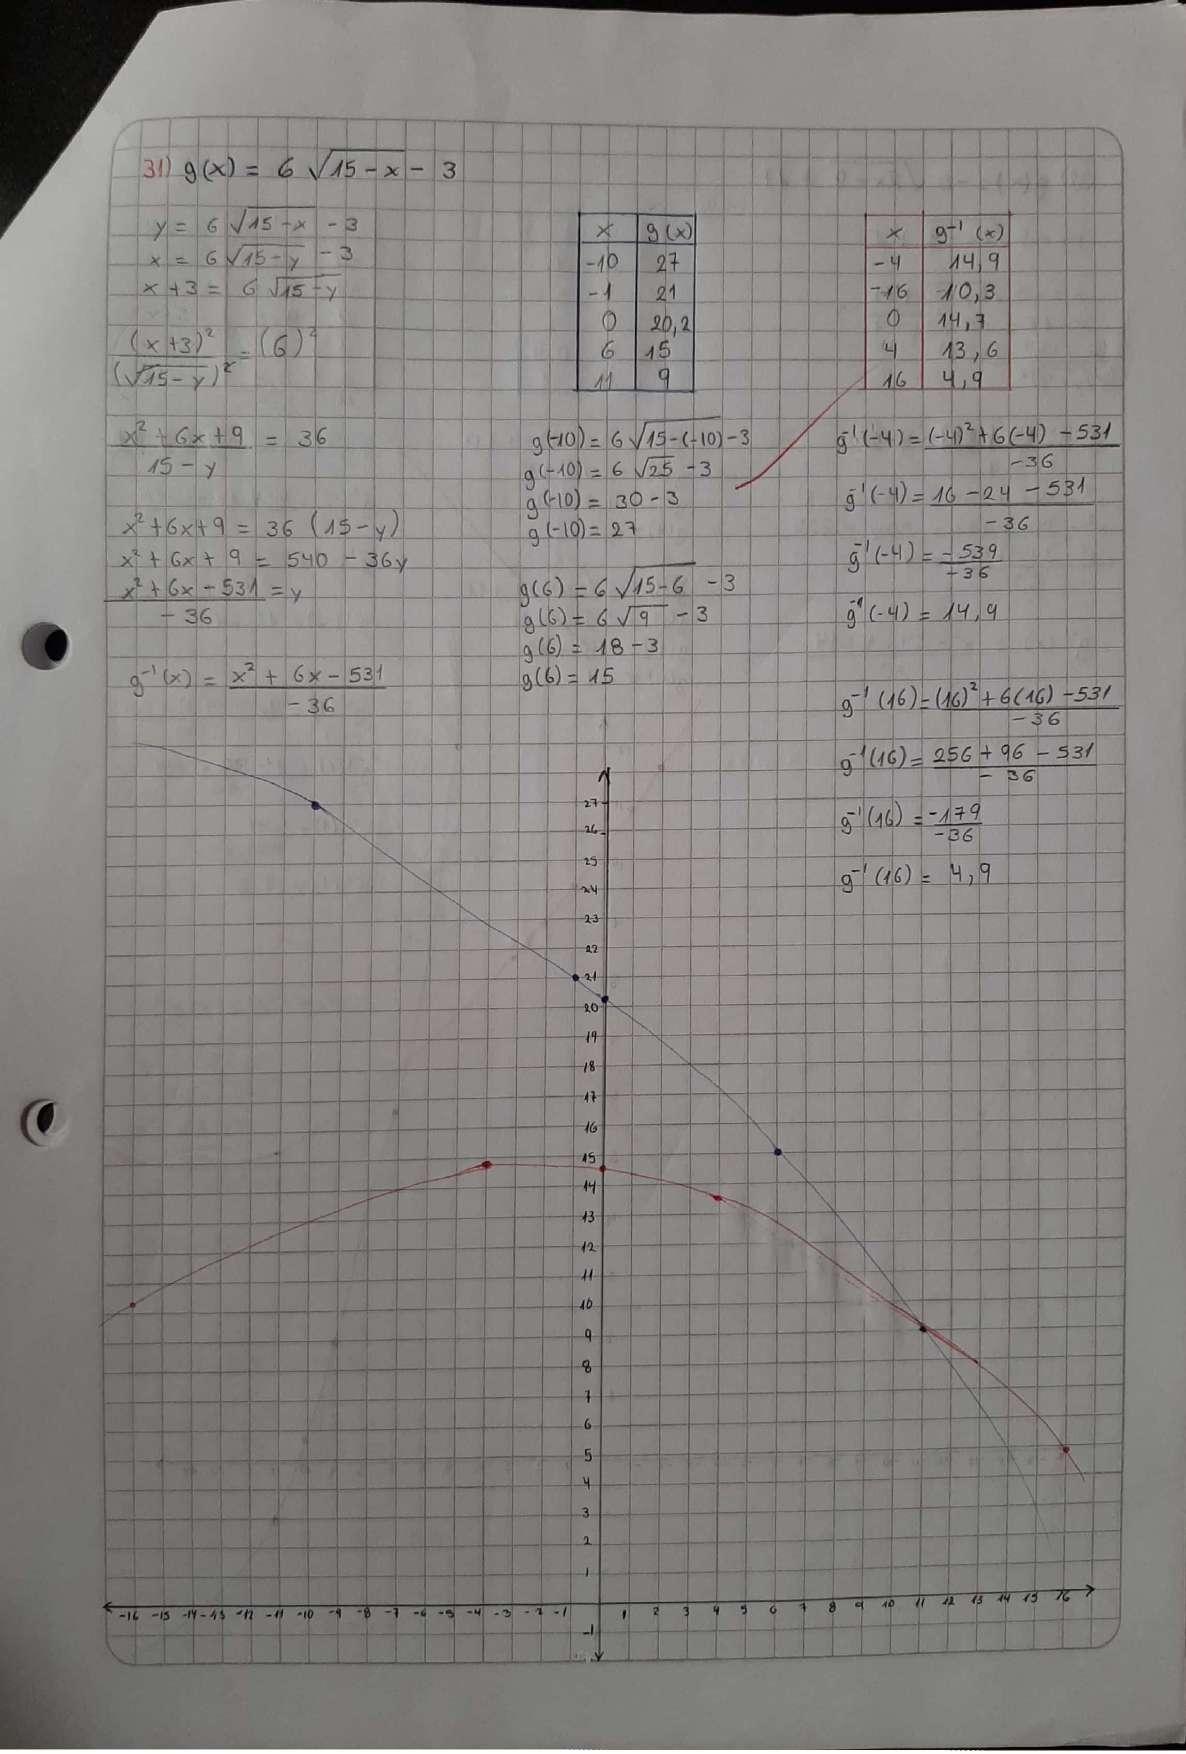 31) g(x) = 6 √15-x - 3
y = 6 √15-x - 3
x = 6 √15-y - 3
x+3 = 6 √15-y
(x+3)² / (√15-y)² = (6)²
x² + 6x + 9 / 15 - y = 36
x² + 6x + 9 = 36 (15-y)
x² + 6x + 9 = 540 - 36y
x² + 6x - 531 / -36 = y
g⁻¹(x) = x² + 6x - 531 / -36
x g(x)
-10 27
-1 21
0 20,2
6 15
11 9
g(-10) = 6 √15-(-10) - 3
g(-10) = 6 √25 - 3
g(-10) = 30 - 3
g(-10) = 27
g(6) = 6 √15-6 - 3
g(6) = 6 √9 - 3
g(6) = 18 - 3
g(6) = 15
x g⁻¹(x)
-4 14,9
-16 10,3
0 14,7
4 13,6
16 4,9
g⁻¹(-4) = (-4)² + 6(-4) - 531 / -36
g⁻¹(-4) = 16 - 24 - 531 / -36
g⁻¹(-4) = -539 / -36
g⁻¹(-4) = 14,9
g⁻¹(16) = (16)² + 6(16) - 531 / -36
g⁻¹(16) = 256 + 96 - 531 / -36
g⁻¹(16) = -179 / -36
g⁻¹(16) = 4,9
27
26
25
24
23
22
21
20
19
18
17
16
15
14
13
12
11
10
9
8
7
6
5
4
3
2
1
-16 -15 -14 -13 -12 -11 -10 -9 -8 -7 -6 -5 -4 -3 -2 -1 1 2 3 4 5 6 7 8 9 10 11 12 13 14 15 16
-1